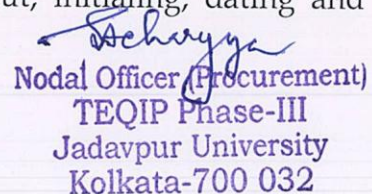 out, initialing, dating and
Acharyya
Nodal Officer (Procurement)
TEQIP Phase-III
Jadavpur University
Kolkata-700 032